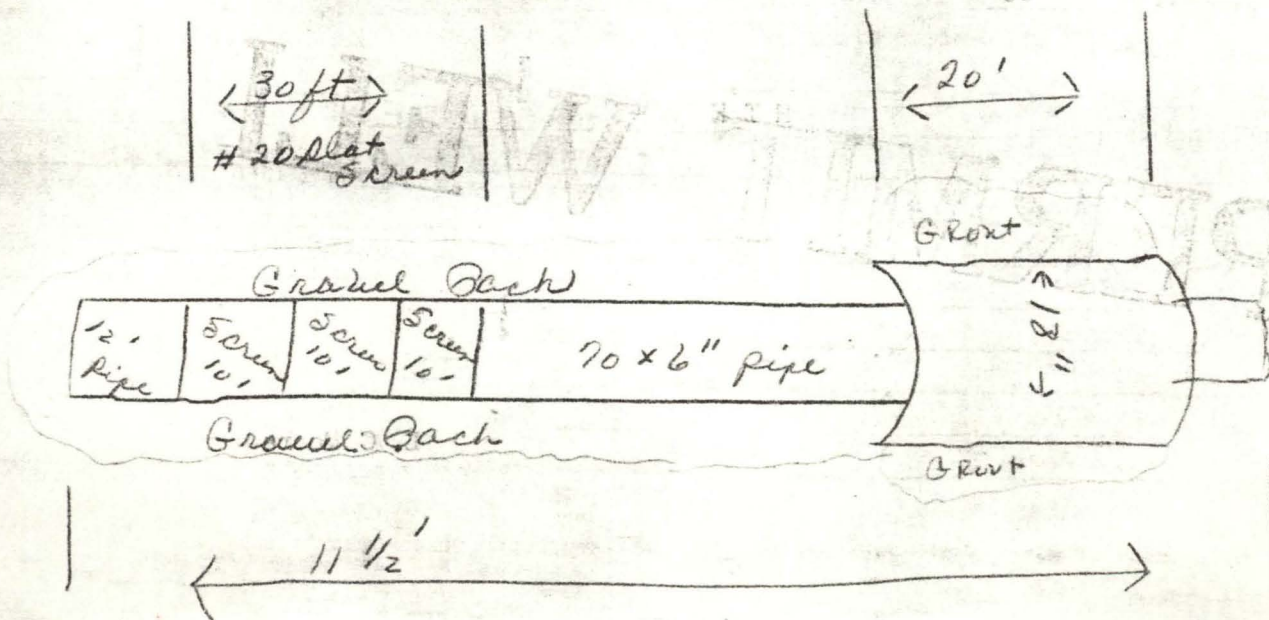 30 ft
# 20 Slot
Screen
20'
Grout
Gravel Pack
12'
Pipe
Screen
10'
Screen
10'
Screen
10'
70 x 6" pipe
18"
Gravel Pack
Grout
11 1/2'